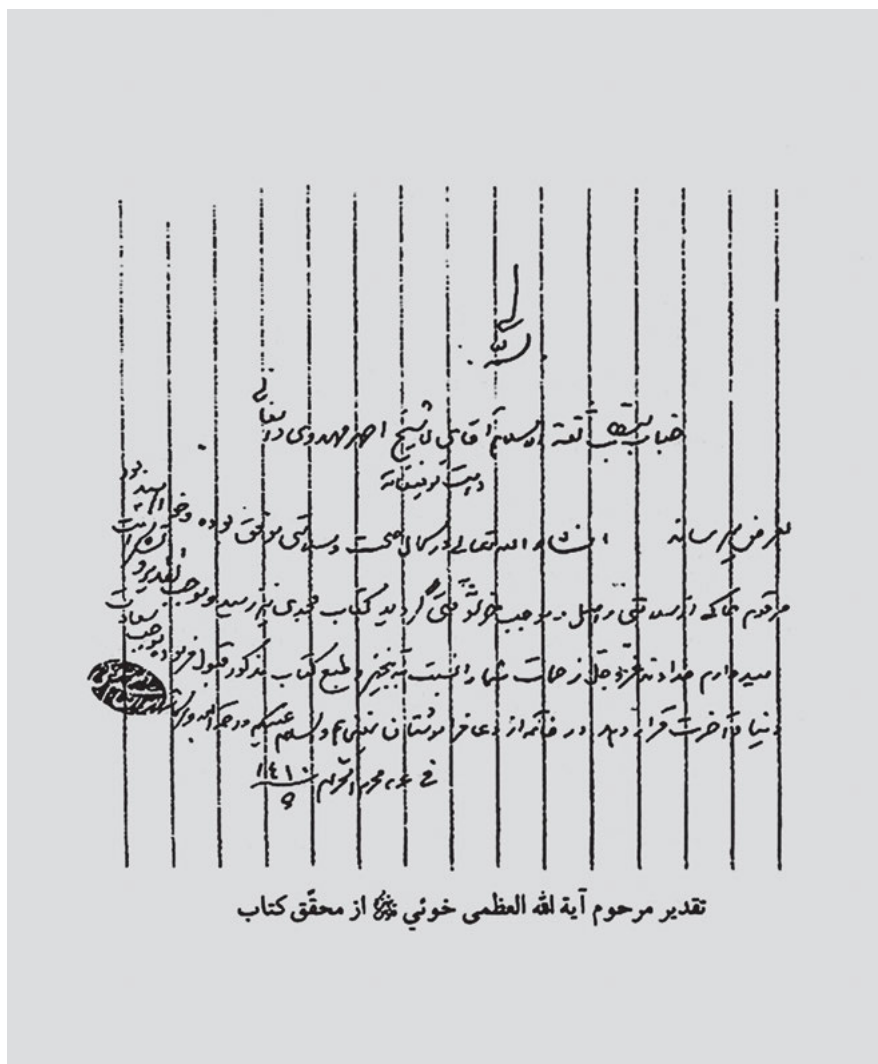 بسمه تعالی
جناب مستطاب ثقة الاسلام آقای شیخ اصغر مهدوی دامغانی
دامت توفیقاته
بعرض میرساند انشاء الله تعالی در کمال صحت و سلامتی موفق بوده و خواهید بود
مرقوم حاکی از سلامتی واصل و موجب خوشوقتی گردید کتاب مجدی نیز رسید و موجب تقدیر و تشکر است
امیدوارم خداوند عزّ و جلّ زحمات شما را نسبت به تنظیم و طبع کتاب مذکور قبول فرموده موجب سعادت
دنیا و آخرت قرار دهد در خاتمه از دعا فراموشتان نمی‌کنم والسلام علیکم ورحمة الله وبرکاته
فی محرم الحرام ١٤١٠
٩
تقدیر مرحوم آیة الله العظمی خوئي از محقّق کتاب